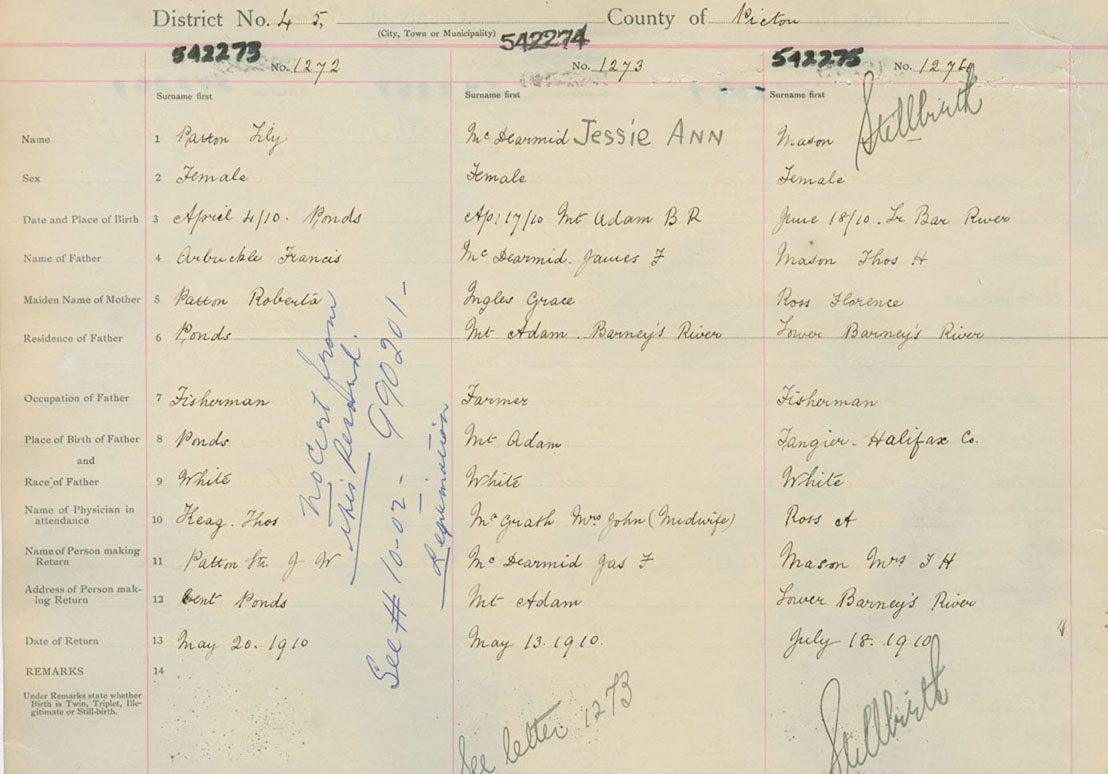 District No. 4 5. County of Pictou
(City, Town or Municipality)
542273 542274 542275
No. 1272 No. 1273 No. 1276
Surname first Surname first Surname first
Stillbirth
Name 1 Patton Lily McDearmid JESSIE ANN Mason
Sex 2 Female Female Female
Date and Place of Birth 3 April 4/10. Ponds Ap. 17/10 Mt Adam B R June 18/10. Lr Bar River
Name of Father 4 Arbuckle Francis McDearmid. James F Mason Thos H
Maiden Name of Mother 5 Patton Roberta Ingles Grace Ross Florence
Residence of Father 6 Ponds Mt Adam. Barney's River Lower Barney's River
Occupation of Father 7 Fisherman Farmer Fisherman
Place of Birth of Father 8 Ponds Mt Adam Tangier - Halifax Co.
and
Race of Father 9 White White White
Name of Physician in
attendance 10 Keag. Thos McGrath Mrs John (Midwife) Ross A
Name of Person making
Return 11 Patton J W McDearmid Jas F Mason Mrs T H
Address of Person mak-
ing Return 12 Cent Ponds Mt Adam Lower Barney's River
Date of Return 13 May 20. 1910 May 13. 1910. July 18. 1910
REMARKS 14
Under Remarks state whether
Birth is Twin, Triplet, Ille-
gitimate or Still-birth.
No Cert from
this Record.
See # 10-02- 990201-
Registration
See letter 1273
Stillbirth